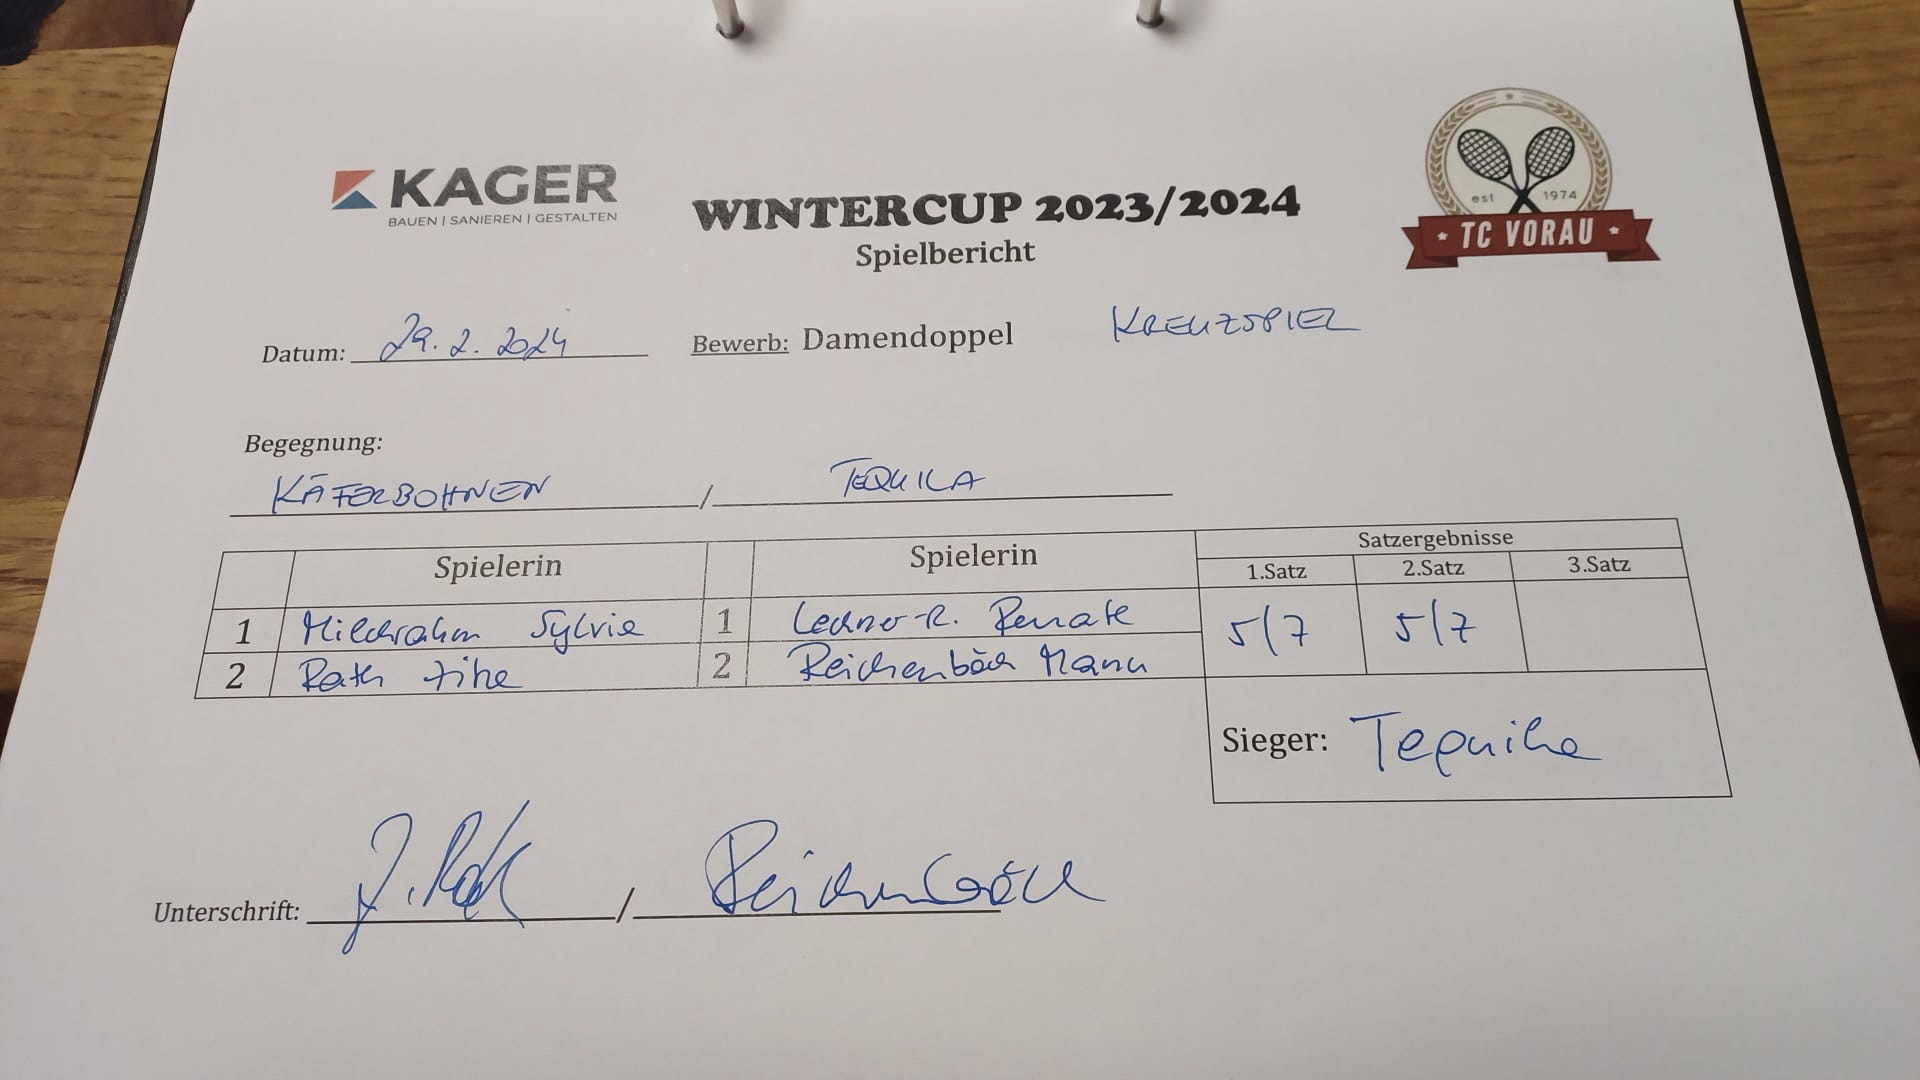 KAGER
BAUEN | SANIEREN | GESTALTEN
WINTERCUP 2023/2024
Spielbericht
est 1974
TC VORAU
Datum: 29.2.2024
Bewerb: Damendoppel KREUZSPIEL
Begegnung:
KÄFERBOHNEN / TEQUILA
Spielerin Spielerin Satzergebnisse
1.Satz 2.Satz 3.Satz
1 Milchrahm Sylvia 1 Lechner-R. Renate 5/7 5/7
2 Rath 2 Reichenbäck Manu
Sieger: Tequila
Unterschrift: / Reichenbäck